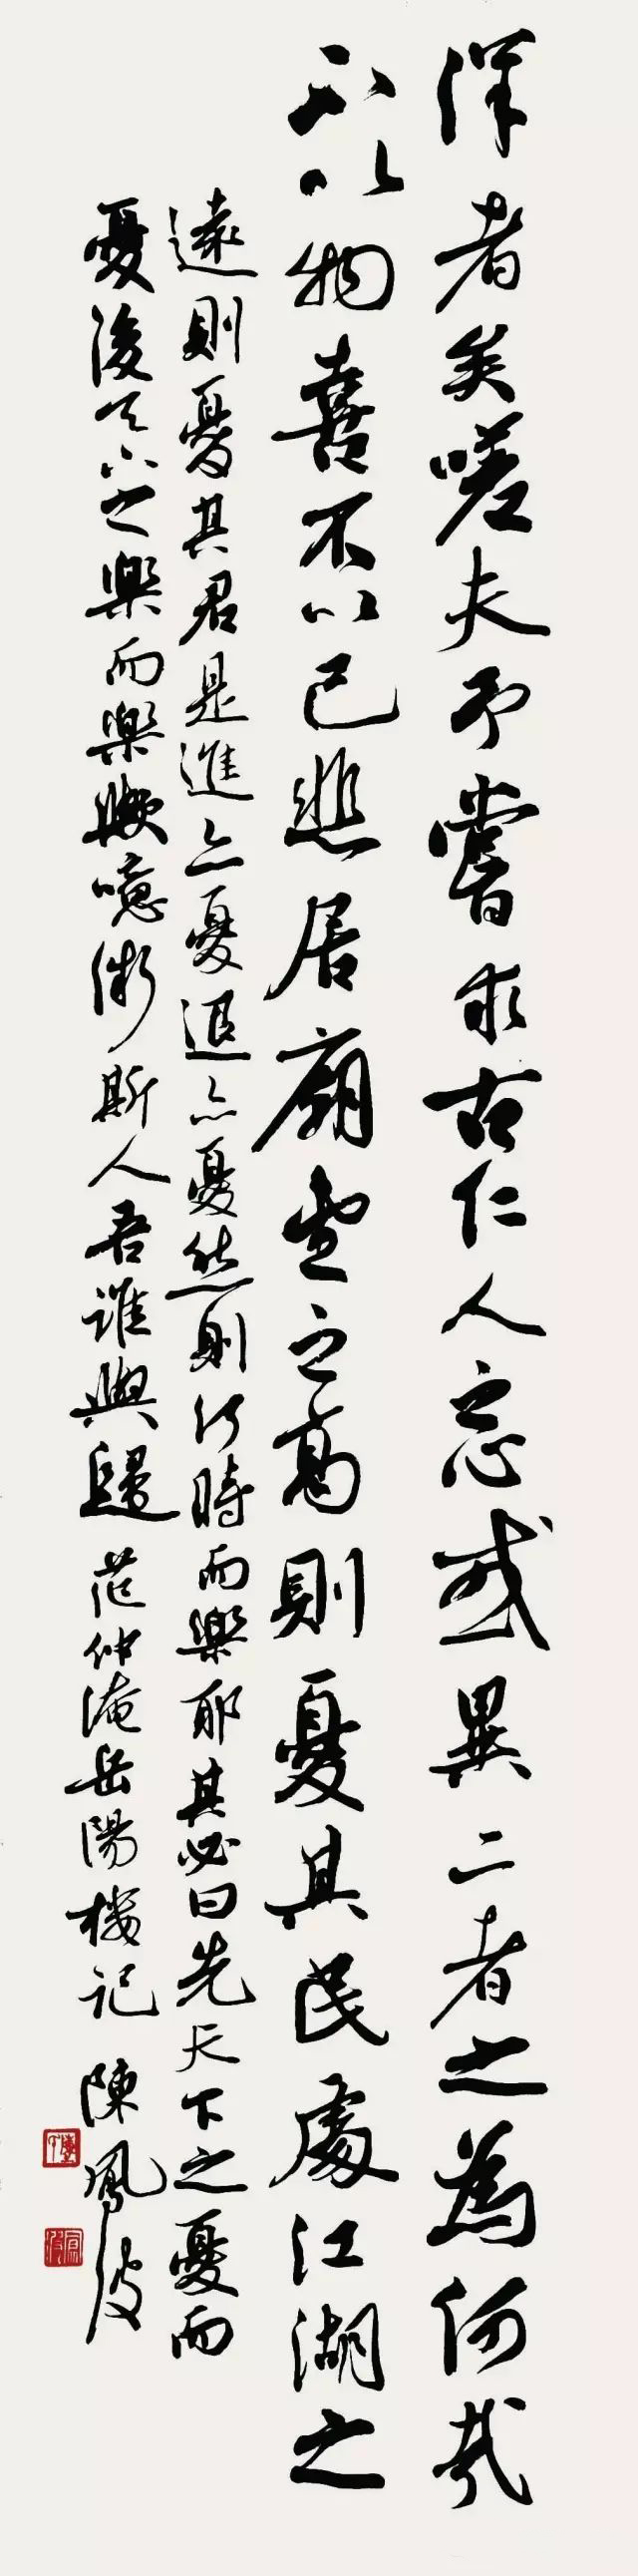 洋者矣嗟夫予嘗求古仁人之心或異二者之為何哉
不以物喜不以己悲居廟堂之高則憂其民處江湖之
遠則憂其君是進亦憂退亦憂然則何時而樂耶其必曰先天下之憂而
憂後天下之樂而樂歟噫微斯人吾誰與歸 范仲淹岳陽楼記 陳鳳波